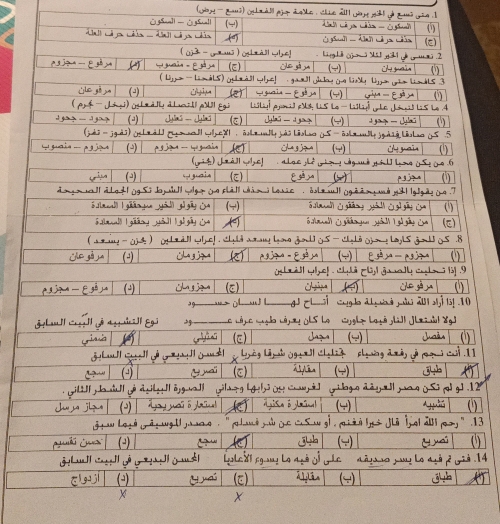 1. متى تسع في الخير يرض الله عنك . علامة جزم الفعلين (تسع – يرض)
(أ) السكون – السكون (ب) السكون – حذف حرف العلة
(ج) حذف حرف العلة – السكون (د) حذف حرف العلة – حذف حرف العلة
2. نسعى في الخير لئلا تحزن قلوبنا . إعراب الفعلين (نسعى – تحزن)
(أ) منصوبان (ب) مرفوعان (ج) مرفوع – منصوب (د) مرفوع – مجزوم
3. كافحنا حتى حررنا بلادنا من بطش العدو . إعراب الفعلين (كافحنا – حررنا)
(أ) مرفوع – مبني (ب) مرفوع – منصوب (ج) مبنيان (د) مرفوعان
4. ما كنا لنبخل على أبنائنا – ما كنا بخلاء لنحرم أبنائنا نوع اللام المتصلة بالفعلين (نبخل – نحرم)
(أ) تعليل – جحود (ب) جحود – تعليل (ج) تعليل – تعليل (د) جحود – جحود
5. كن صادقا فتفوز بالسعادة – كن صادقا تفز بالسعادة . الإعراب الصحيح للفعلين (تفوز – تفز)
(أ) منصوبان (ب) مجزومان (ج) منصوب – مجزوم (د) مجزوم – منصوب
6. من يكن محبا للخير فسوف يجني ثمار عمله . إعراب الفعل (يجني)
(أ) مجزوم (ب) مرفوع (ج) منصوب (د) مبني
7. من يقولوا الخير فسيحققون السعادة . عندما نحذف الفاء من جواب الشرط تكون الجملة الصحيحة
(أ) من يقولوا الخير يحققون السعادة (ب) من يقولوا الخير سيحققوا السعادة
(ج) من يقولوا الخير سيحققون السعادة (د) من يقولوا الخير يحققوا السعادة
8. كن للحق كارها يحزن قلبك – كن للحق محبا يسعد قلبك . إعراب الفعلين (يحزن – يسعد)
(أ) مجزوم – مرفوع (ب) مرفوع - مجزوم (ج) مجزومان (د) مرفوعان
9. إذا تحليت بالصدق ارتاح قلبك . إعراب الفعلين
(أ) مرفوعان (ب) مبنيان (ج) مجزومان (د) مرفوع – مجزوم
10. إذا أراد الله نشر فضيلة طويت أتاح لها لسان حسود
لولا اشتعال النار فيما جاورت ما كان يعرف طيب عرف عود نوع التشبيه في البيت السابق
(أ) مفصل (ب) مجمل (ج) تمثيلي (د) ضمني
11. أنت نجم في رفعة وضياء تجتليك العيون شرقا وغربا المحسن البديعي في البيت السابق
(أ) طباق (ب) مقابلة (ج) تصريع (د) سجع
12. لو لم تكن مصر العريقة موطني لغرست بين ترابها وجداني الصورة البيانية في الشطر الثاني.
(أ) تشبيه (ب) استعارة مكنية (ج) استعارة تصريحية (د) مجاز مرسل
13. "رحم الله امرأ قال خيرا فغنم , أو سكت عن شر فسلم" . مصدر الموسيقى فيما سبق
(أ) تصريع (ب) طباق (ج) سجع (د) حسن تقسيم
14. فتى تم فيه ما يسر صديقه على أن فيه ما يسوء الأعاديا المحسن البديعي في البيت السابق
(أ) طباق (ب) مقابلة (ج) تصريع (د) ازدواج